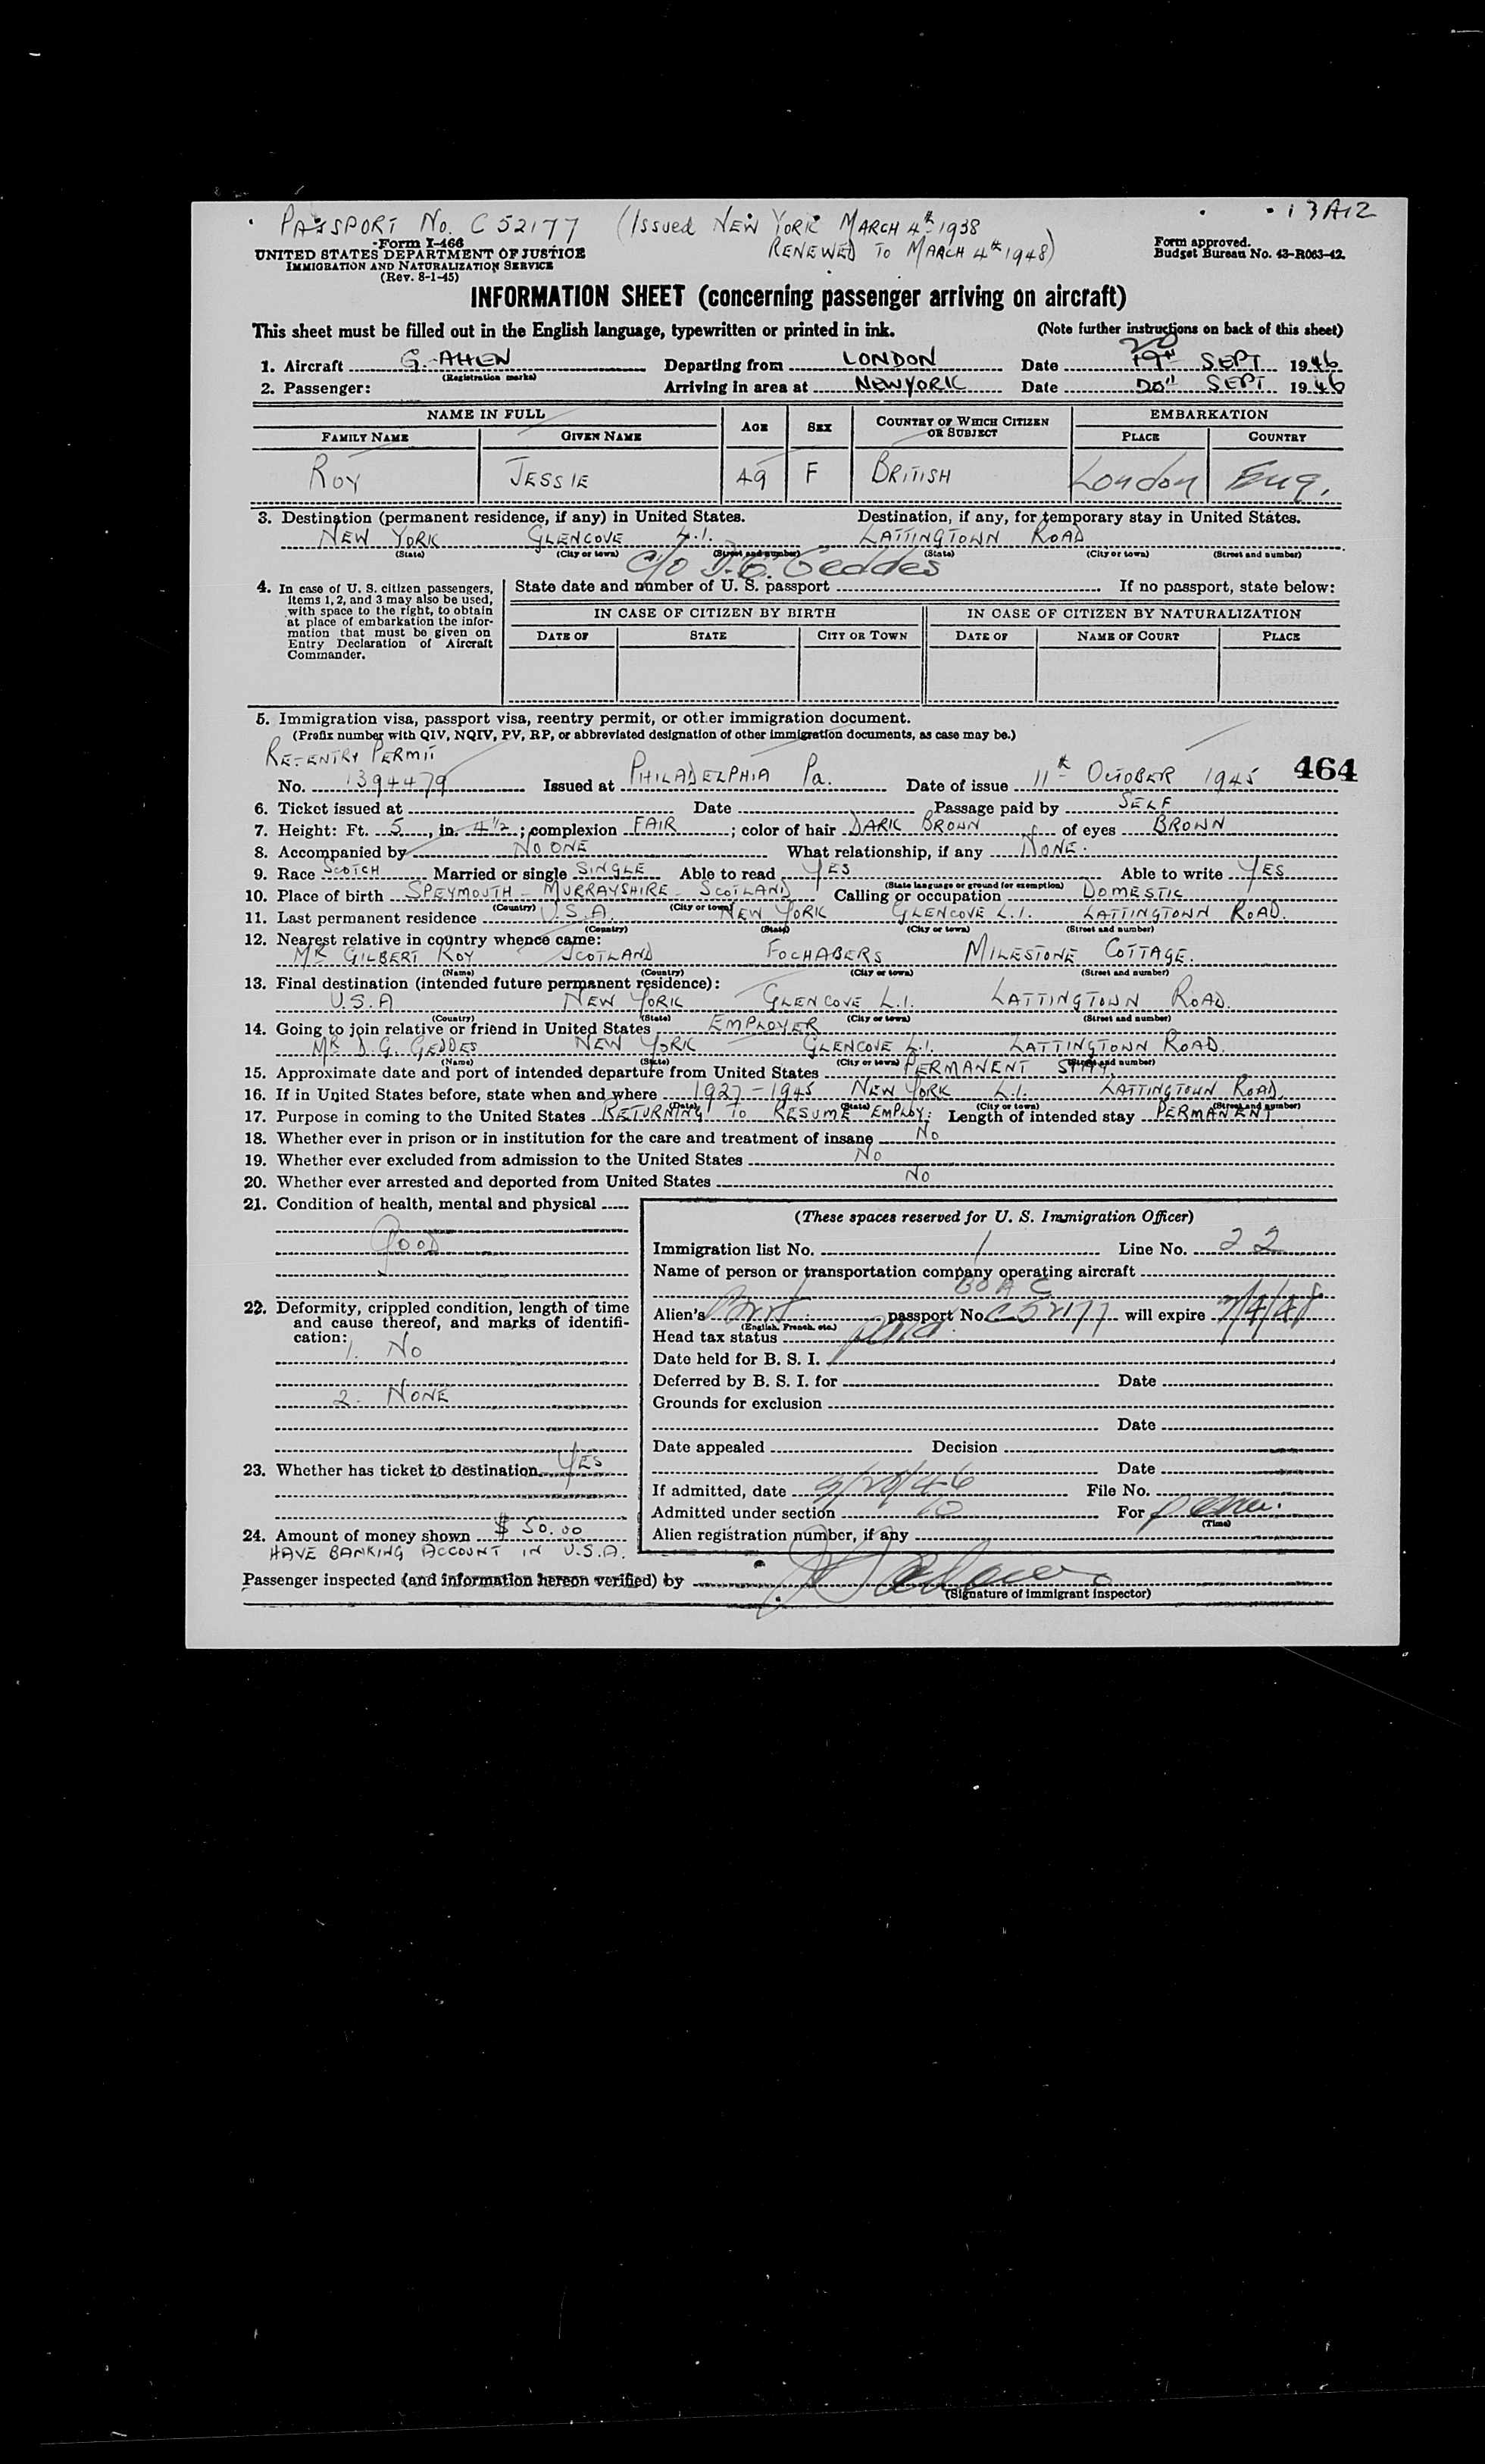 13A12
PASSPORT No. C 52177 (Issued NEW YORK MARCH 4th 1938
RENEWED TO MARCH 4th 1948)
Form I-466
UNITED STATES DEPARTMENT OF JUSTICE
IMMIGRATION AND NATURALIZATION SERVICE
(Rev. 8-1-45)
Form approved.
Budget Bureau No. 43-R063-42.
INFORMATION SHEET (concerning passenger arriving on aircraft)
This sheet must be filled out in the English language, typewritten or printed in ink. (Note further instructions on back of this sheet)
20
1. Aircraft G-AHEN Departing from LONDON Date 19th SEPT 1946
(Registration marks)
2. Passenger: Arriving in area at NEW YORK Date 20th SEPT 1946
NAME IN FULL AGE SEX COUNTRY OF WHICH CITIZEN OR SUBJECT EMBARKATION
FAMILY NAME GIVEN NAME PLACE COUNTRY
ROY JESSIE 49 F BRITISH London Eng.
3. Destination (permanent residence, if any) in United States. Destination, if any, for temporary stay in United States.
NEW YORK GLENCOVE L.I. LATTINGTOWN ROAD
(State) (City or town) (Street and number) (State) (City or town) (Street and number)
c/o D.G. Geddes
4. In case of U. S. citizen passengers, items 1, 2, and 3 may also be used, with space to the right, to obtain at place of embarkation the information that must be given on Entry Declaration of Aircraft Commander.
State date and number of U. S. passport If no passport, state below:
IN CASE OF CITIZEN BY BIRTH IN CASE OF CITIZEN BY NATURALIZATION
DATE OF STATE CITY OR TOWN DATE OF NAME OF COURT PLACE
5. Immigration visa, passport visa, reentry permit, or other immigration document.
(Prefix number with QIV, NQIV, PV, RP, or abbreviated designation of other immigration documents, as case may be.)
RE-ENTRY PERMIT
No. 1394479 Issued at PHILADELPHIA Pa. Date of issue 11th OCTOBER 1945 464
6. Ticket issued at Date Passage paid by SELF
7. Height: Ft. 5, in. 4 1/2; complexion FAIR; color of hair DARK BROWN of eyes BROWN
8. Accompanied by NO ONE What relationship, if any NONE.
9. Race SCOTCH Married or single SINGLE Able to read YES Able to write YES
(State language or ground for exemption)
10. Place of birth SPEYMOUTH - MURRAYSHIRE - SCOTLAND Calling or occupation DOMESTIC
(Country) (City or town)
11. Last permanent residence U.S.A. NEW YORK GLENCOVE L.I. LATTINGTOWN ROAD.
(Country) (State) (City or town) (Street and number)
12. Nearest relative in country whence came:
MR GILBERT ROY SCOTLAND FOCHABERS MILESTONE COTTAGE.
(Name) (Country) (City or town) (Street and number)
13. Final destination (intended future permanent residence):
U.S.A NEW YORK GLENCOVE L.I. LATTINGTOWN ROAD.
(Country) (State) (City or town) (Street and number)
14. Going to join relative or friend in United States EMPLOYER
MR D.G. GEDDES NEW YORK GLENCOVE L.I. LATTINGTOWN ROAD.
(Name) (State) (City or town) (Street and number)
15. Approximate date and port of intended departure from United States PERMANENT STAY.
16. If in United States before, state when and where 1927-1945 NEW YORK L.I. LATTINGTOWN ROAD.
(Date) (State) (City or town) (Street and number)
17. Purpose in coming to the United States RETURNING TO RESUME EMPLOY: Length of intended stay PERMANENT
18. Whether ever in prison or in institution for the care and treatment of insane NO
19. Whether ever excluded from admission to the United States NO
20. Whether ever arrested and deported from United States NO
21. Condition of health, mental and physical
GOOD
22. Deformity, crippled condition, length of time and cause thereof, and marks of identification:
1. NO
2. NONE
23. Whether has ticket to destination YES
24. Amount of money shown $ 50.00
HAVE BANKING ACCOUNT IN U.S.A.
(These spaces reserved for U. S. Immigration Officer)
Immigration list No. 1 Line No. 22
Name of person or transportation company operating aircraft
BOAC
Alien's Brit. passport No. C52177 will expire 3/4/48
(English, French, etc.)
Head tax status
Date held for B. S. I.
Deferred by B. S. I. for Date
Grounds for exclusion
Date
Date appealed Decision
Date
If admitted, date 9/20/46 File No.
Admitted under section 10 For Perm.
(Time)
Alien registration number, if any
Passenger inspected (and information hereon verified) by
(Signature of immigrant inspector)